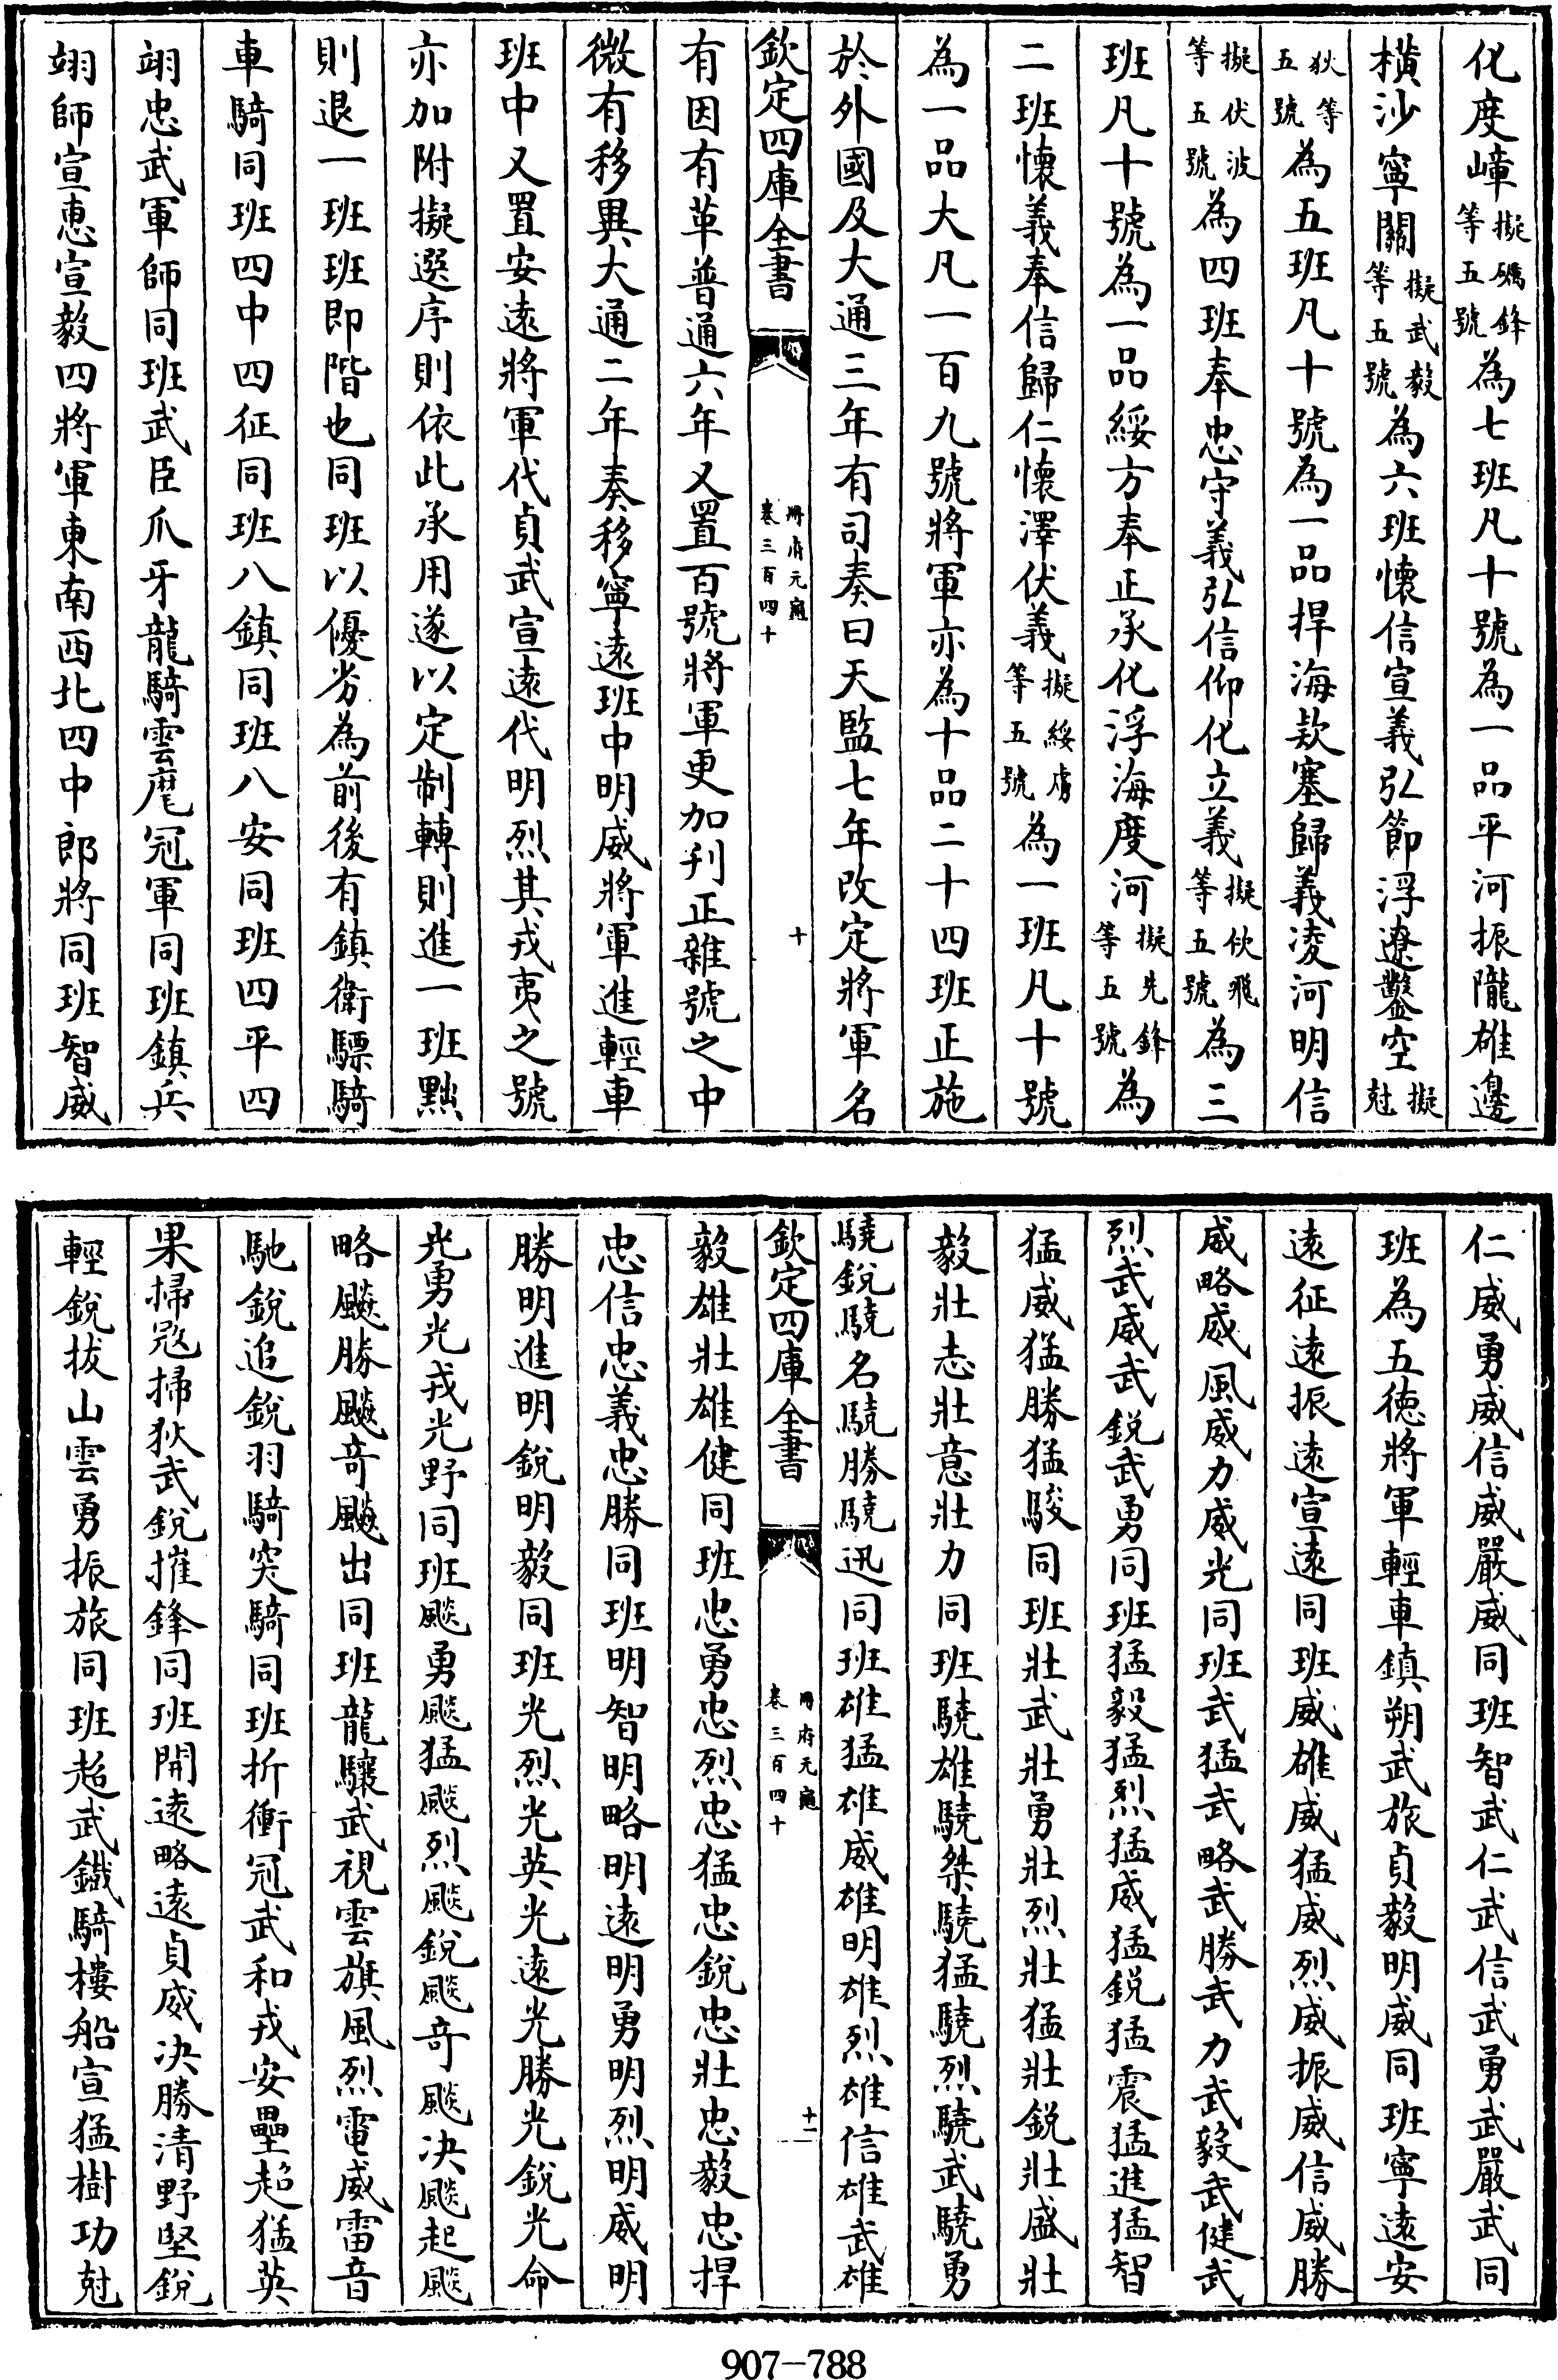 化度嶂擬礪鋒等五號為七班凡十號為一品平河振隴雄邊
橫沙寧關擬武毅等五號為六班懷信宣義弘節浮遼鑿空擬尅
狄等五號為五班凡十號為一品捍海款塞歸義凌河明信
擬伏波等五號為四班奉忠守義弘信仰化立義擬佽飛等五號為三
班凡十號為一品綏方奉正承化浮海度河擬先鋒等五號為
二班懷義奉信歸仁懷澤伏義擬綏虜等五號為一班凡十號
為一品大凡一百九號將軍亦為十品二十四班正施
於外國及大通三年有司奏曰天監七年改定將軍名
欽定四庫全書 冊府元龜 卷三百四十 十
有因有革普通六年又置百號將軍更加刋正雜號之中
微有移異大通二年奏移寧遠班中明威將軍進輕車
班中又置安遠將軍代貞武宣遠代明烈其戎夷之號
亦加附擬選序則依此承用遂以定制轉則進一班黜
則退一班班即階也同班以優劣為前後有鎮衛驃騎
車騎同班四中四征同班八鎮同班八安同班四平四
翊忠武軍師同班武臣爪牙龍騎雲麾冠軍同班鎮兵
翊師宣惠宣毅四將軍東南西北四中郎將同班智威
仁威勇威信威嚴威同班智武仁武信武勇武嚴武同
班為五德將軍輕車鎮朔武旅貞毅明威同班寧遠安
遠征遠振遠宣遠同班威雄威猛威烈威振威信威勝
威略威風威力威光同班武猛武略武勝武力武毅武健武
烈武威武銳武勇同班猛毅猛烈猛威猛銳猛震猛進猛智
猛威猛勝猛駿同班壯武壯勇壯烈壯猛壯銳壯盛壯
毅壯志壯意壯力同班驍雄驍桀驍猛驍烈驍武驍勇
驍銳驍名驍勝驍迅同班雄猛雄威雄明雄烈雄信雄武雄
欽定四庫全書 冊府元龜 卷三百四十 十一
毅雄壯雄健同班忠勇忠烈忠猛忠銳忠壯忠毅忠捍
忠信忠義忠勝同班明智明略明遠明勇明烈明威明
勝明進明銳明毅同班光烈光英光遠光勝光銳光命
光勇光戎光野同班飈勇飈猛飈烈飈銳飈奇飈决飈起飈
略飈勝飈奇飈出同班龍驤武視雲旗風烈電威雷音
馳銳追銳羽騎突騎同班折衝冠武和戎安壘超猛英
果掃㓂掃狄武銳摧鋒同班開遠略遠貞威决勝清野堅銳
輕銳拔山雲勇振旅同班超武鐵騎樓船宣猛樹功尅
907-788